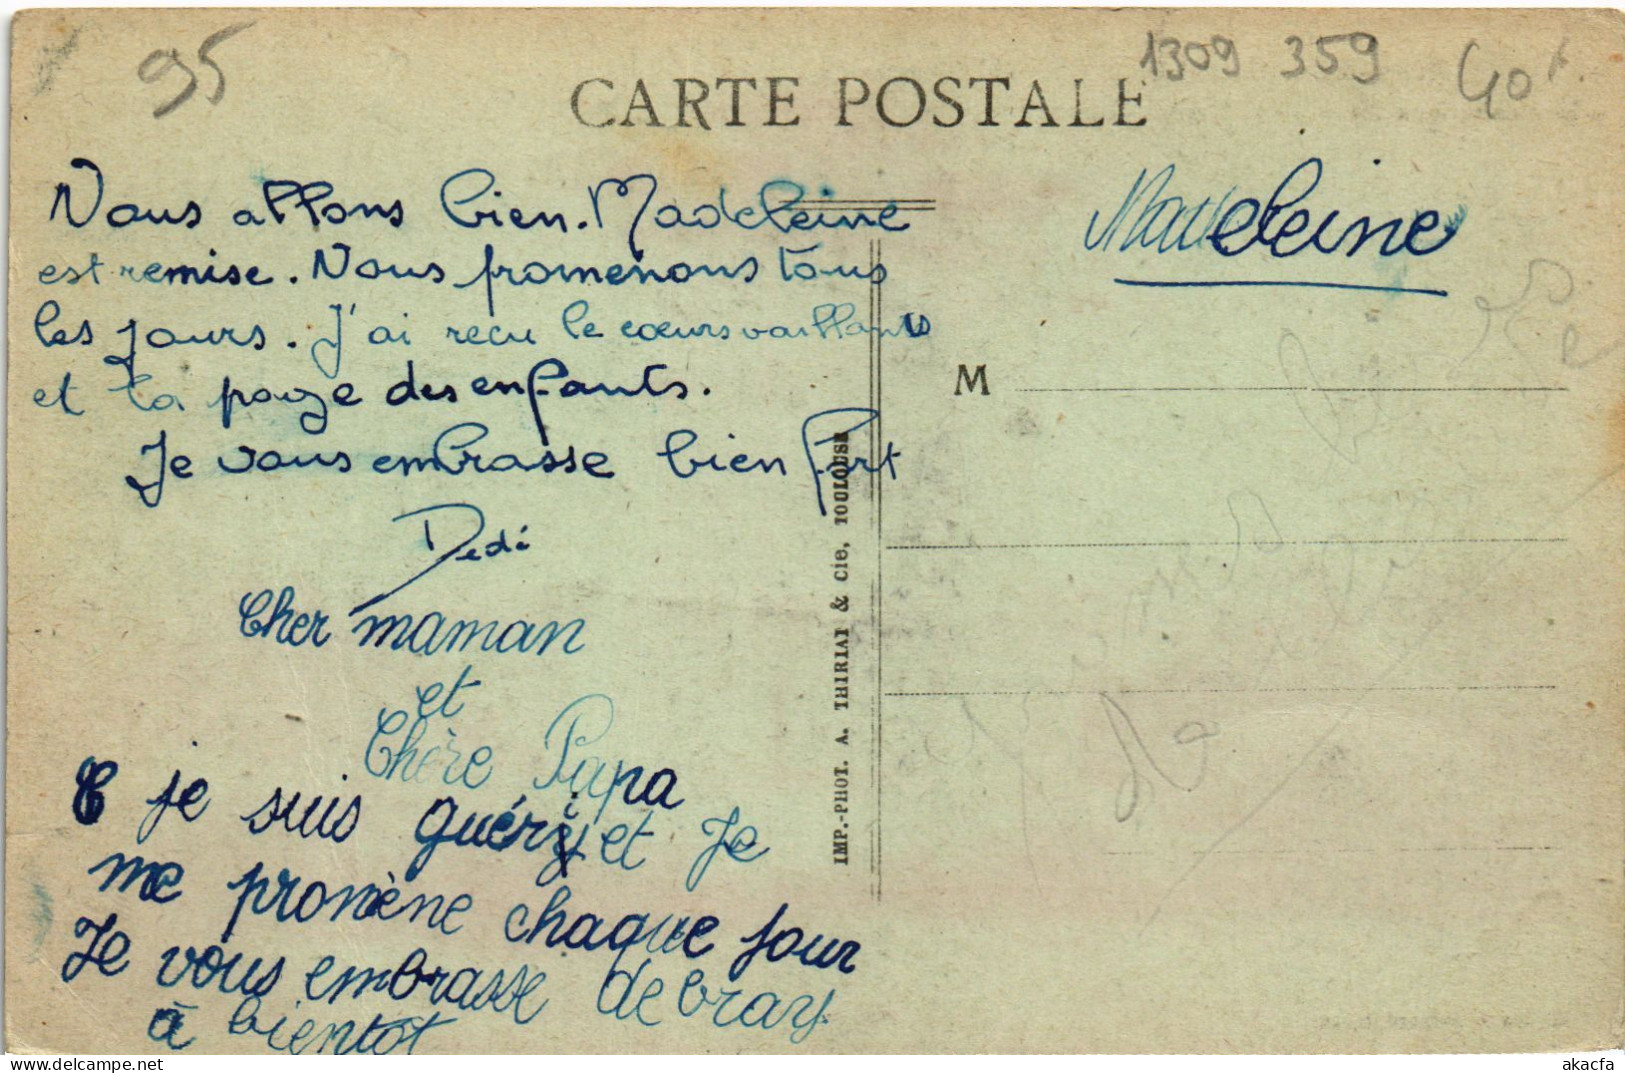 95
1309 359 40f.
CARTE POSTALE
Nous allons bien. Madeleine
est remise. Nous promenons tous
les jours. J'ai recu le cœurs vaillants
et ta page des enfants.
Je vous embrasse bien fort
Dedé
Cher maman
et
Chère Papa
je suis guéri et Je
me promène chaque jour
Je vous embrasse de bras
à bientôt
IMP.-PHOT. A. THIRIAT & Cie, TOULOUSE
Madeleine
M
akacfa